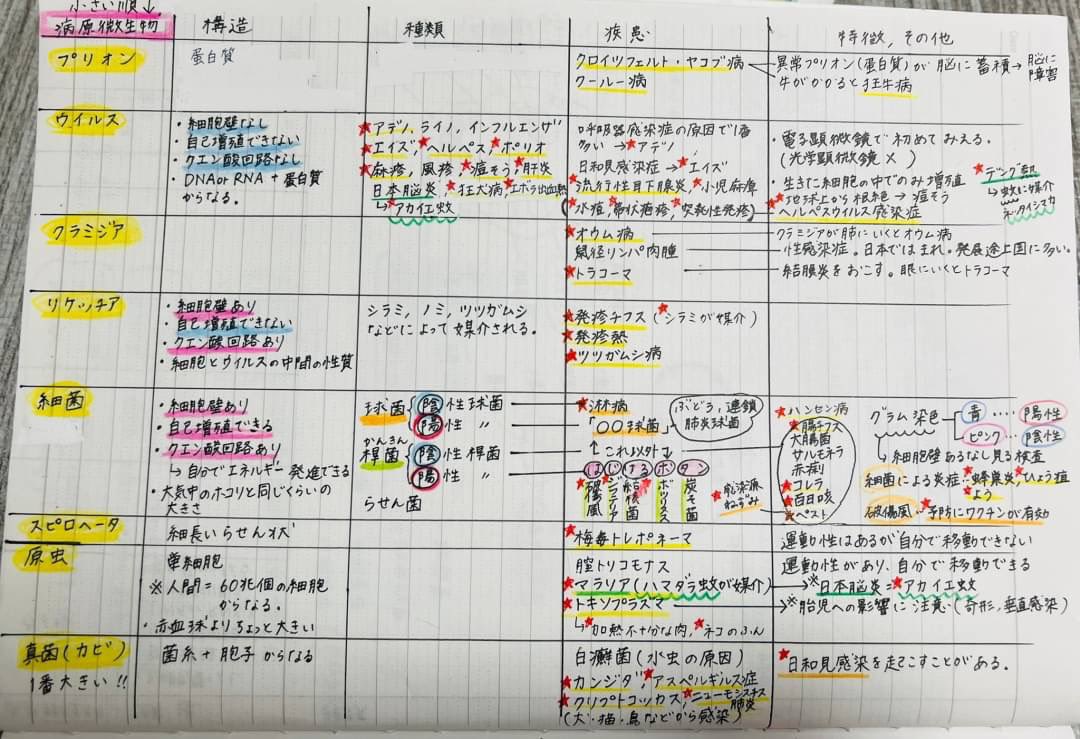 小さい順↓
病原微生物
構造
種類
疾患
特徴,その他
プリオン
蛋白質
クロイツフェルト・ヤコブ病
クールー病
異常プリオン(蛋白質)が脳に蓄積→脳に障害
牛がかかると狂牛病
ウイルス
・細胞壁なし
・自己増殖できない
・クエン酸回路なし
・DNAorRNA+蛋白質
からなる。
★アデノ,ライノ,インフルエンザ
★エイズ,★ヘルペス,★ポリオ
★麻疹,風疹,★痘そう,★肝炎
日本脳炎,★狂犬病,★エボラ出血熱
↳★アカイエ蚊
呼吸器感染症の原因で1番
多い→★アデノ
日和見感染症→★エイズ
★流行性耳下腺炎,★小児麻痺
(★水痘,帯状疱疹,★突発性発疹)
・電子顕微鏡で初めてみえる。
(光学顕微鏡×)
・生きた細胞の中でのみ増殖
★地球上から根絶→痘そう
★ヘルペスウイルス感染症
★デング熱
↳蚊に媒介
ネッタイシマカ
クラミジア
★オウム病
鼠径リンパ肉腫
★トラコーマ
クラミジアが肺にいくとオウム病
性感染症。日本ではまれ。発展途上国に多い。
結膜炎をおこす。眼にいくとトラコーマ
リケッチア
・細胞壁あり
・自己増殖できない
・クエン酸回路あり
・細胞とウイルスの中間の性質
シラミ,ノミ,ツツガムシ
などによって媒介される。
★発疹チフス(★シラミが媒介)
★発疹熱
★ツツガムシ病
細菌
・細胞壁あり
・自己増殖できる
・クエン酸回路あり
↳自分でエネルギー発進できる
・大気中のホコリと同じくらいの
大きさ
球菌
陰性球菌
陽性 〃
かんきん
桿菌
陰性 桿菌
陽性 〃
らせん菌
★淋病
「○○球菌」
ぶどう,連鎖
肺炎球菌
↑これ以外↓
はじけるボタン
破傷風
ジフテリア
結核菌
ボツリヌス
炭そ菌
★感染源
ねずみ
★ハンセン病
★腸チフス
大腸菌
サルモネラ
赤痢
★コレラ
★百日咳
★ペスト
グラム染色
青‥‥陽性
ピンク‥陰性
↳細胞壁あるなし見る検査
細菌による炎症‥★蜂巣炎,ひょう疽
★よう
破傷風‥★予防にワクチンが有効
スピロヘータ
細長いらせん状
★梅毒トレポネーマ
運動性はあるが自分で移動できない
原虫
単細胞
※人間=60兆個の細胞
からなる。
・赤血球よりちょっと大きい
膣トリコモナス
★マラリア(ハマダラ蚊が媒介)
★トキソプラズマ
↳★加熱不十分な肉,★ネコのふん
運動性があり、自分で移動できる
※日本脳炎=★アカイエ蚊
※胎児への影響に注意(奇形,垂直感染)
真菌(カビ)
1番大きい!!
菌糸+胞子からなる
白癬菌(水虫の原因)
★カンジダ,★アスペルギルス症
★クリプトコッカス,★ニューモシスチス肺炎
(犬・猫・鳥などから感染)
★日和見感染を起こすことがある。